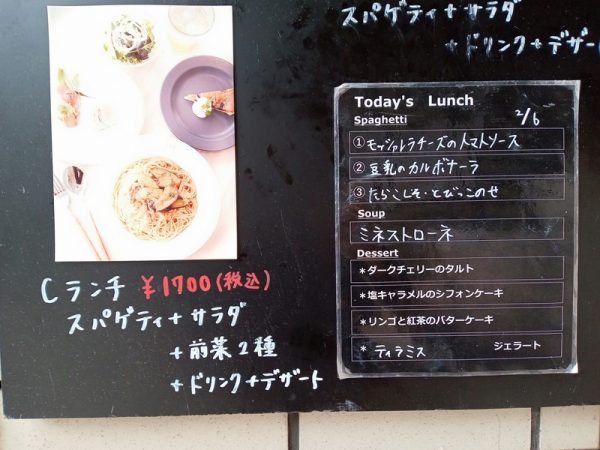 スパゲティ+サラダ
+ドリンク+デザー
Today's Lunch
Spaghetti 2/6
①モッツァレラチーズのトマトソース
②豆乳のカルボナーラ
③たらこしそ・とびっこのせ
Soup
ミネストローネ
Dessert
*ダークチェリーのタルト
*塩キャラメルのシフォンケーキ
*リンゴと紅茶のバターケーキ
*ティラミス ジェラート
Cランチ ¥1700(税込)
スパゲティ+サラダ
+前菜2種
+ドリンク+デザート